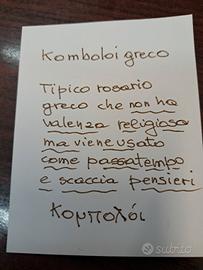 Komboloi greco
Tipico rosario
greco che non ha
valenza religiosa
ma viene usato
come passatempo
e scaccia pensieri
Κομπολόι
subito